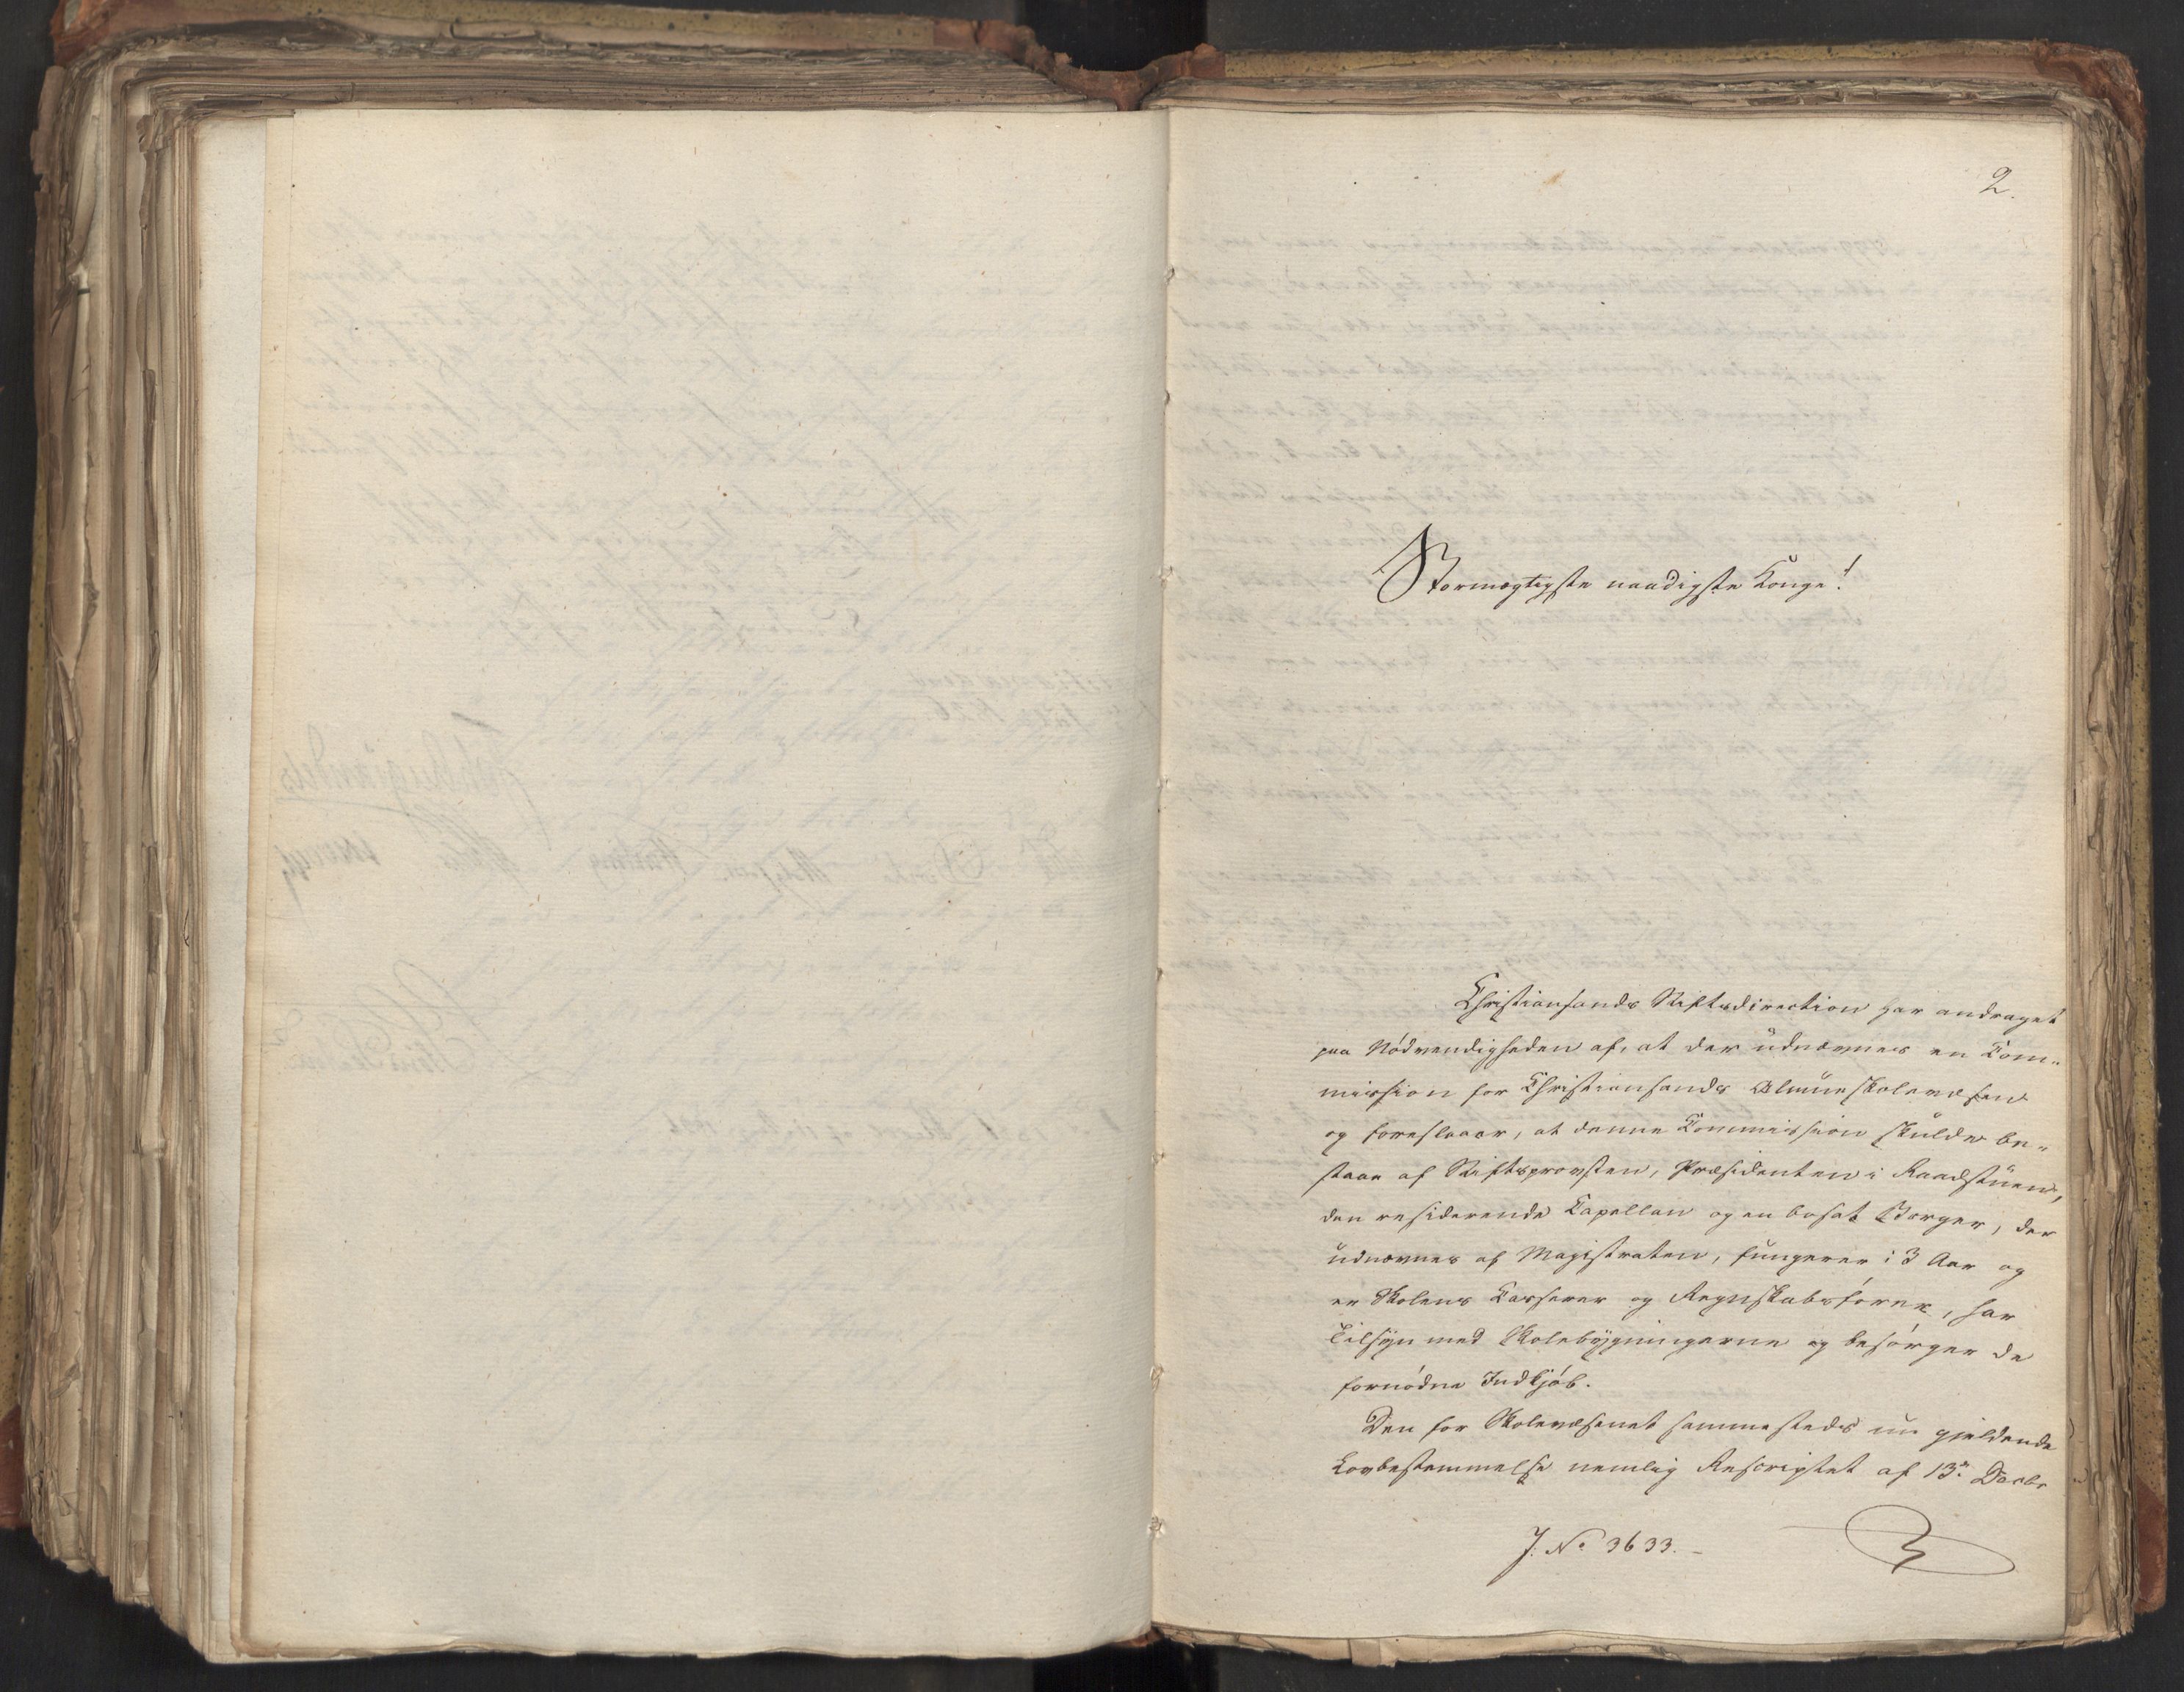 2.
Stormægtigste naadigste Konge!
Christiansands Stiftsdirection har andraget
paa Nödvendigheden af, at der udnævnes en Com-
mission for Christiansands Almueskolevæsen
og foreslaaer, at denne Commission skulde be-
staae af Stiftsprovsten, Præsidenten i Raadstuen,
den residerende Capellan og en bosat Borger, der
udnævnes af Magistraten, fungerer i 3 Aar og
er Skolens Casserer og Regnskabsförer, har
Tilsyn med Skolebygningerne og besörger de
fornödne Indkjöb.
Den for Skolevæsenet sammesteds nu gjeldende
Lovbestemmelse nemlig Rescriptet af 13de Decbr
J. No 3633.